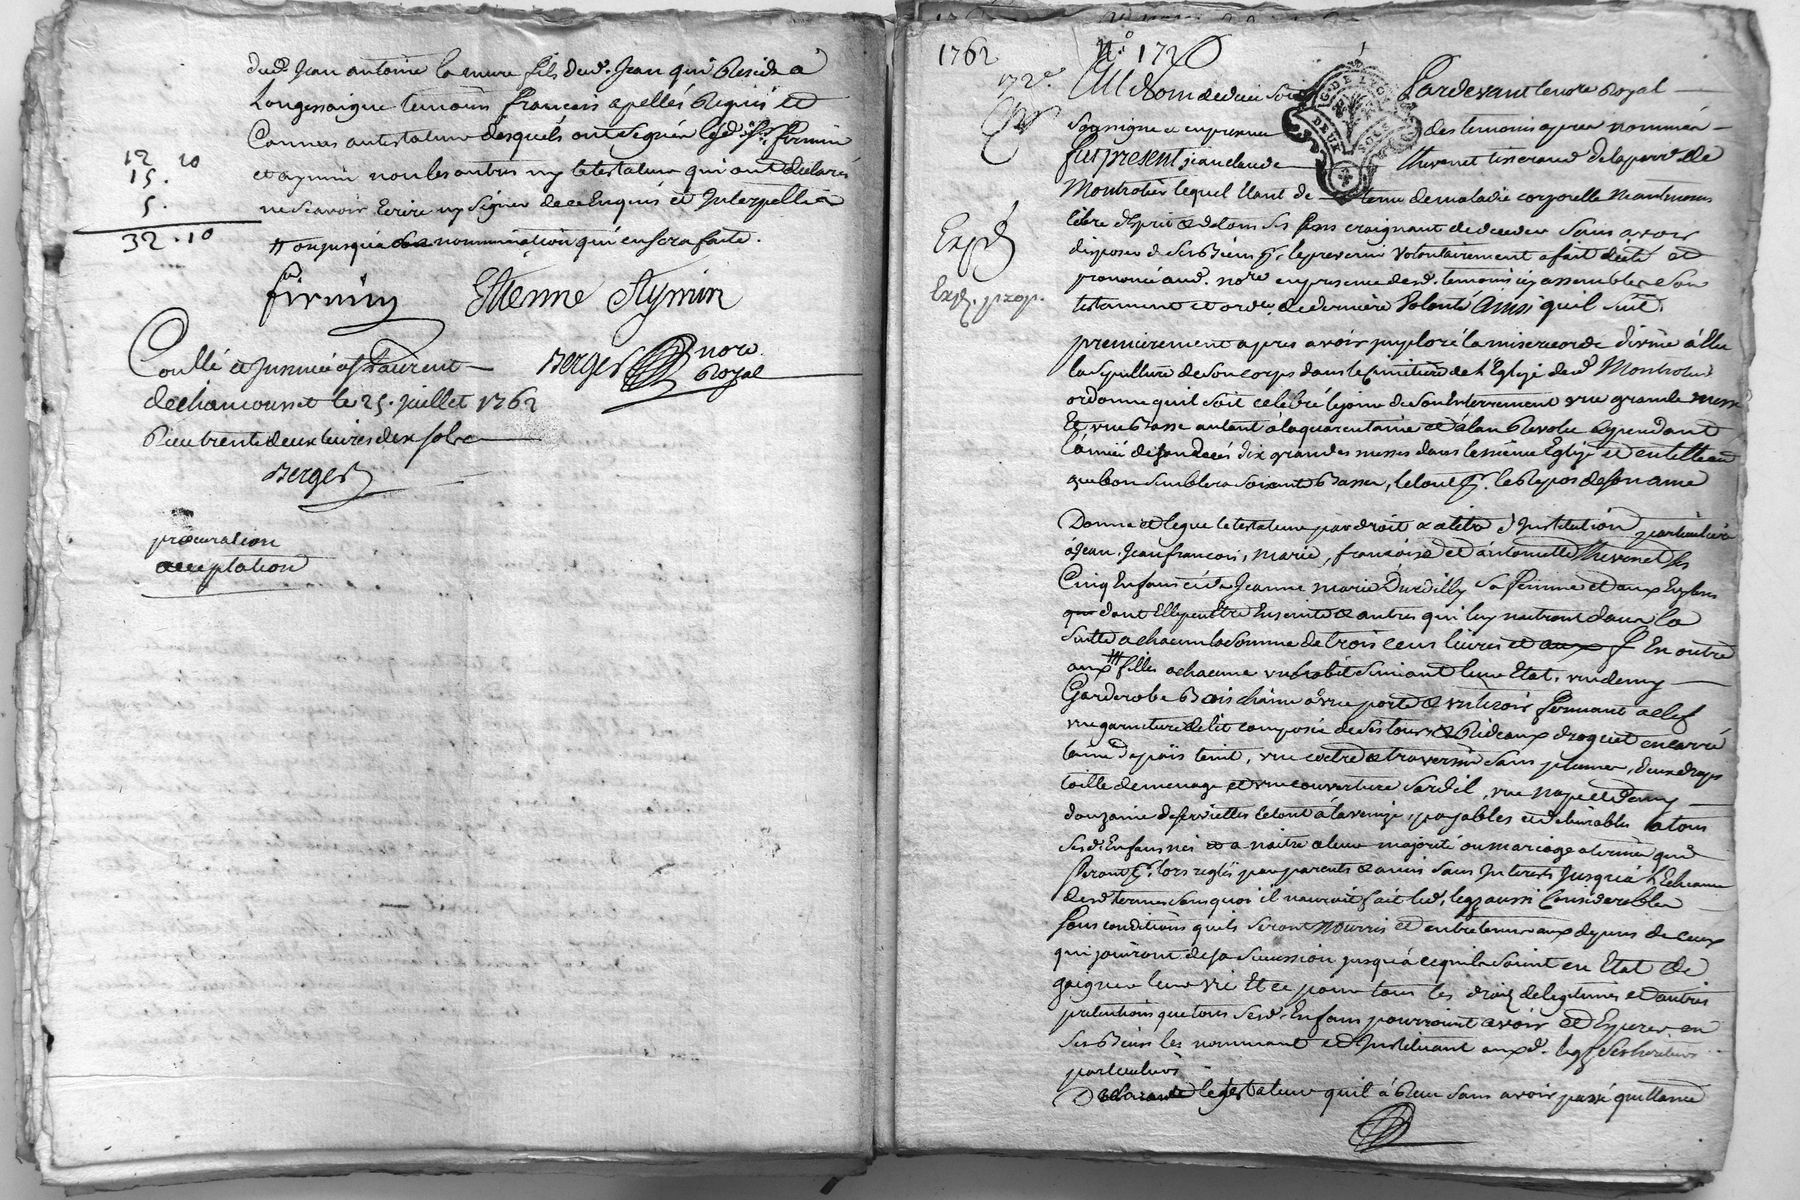 dud. Jean antoine la mure fils dud. Jean qui Reside a
Longessaigne temoins francois apellés Requis et
Connus au testateur desquels ont signés led. sr. firmin
et aymin non les autres ny le testateur qui ont déclarés
ne scavoir Ecrire ny signer de ce Enquis et Interpellés
# ou jusqu'a nomination qui en sera faite.
12 10
15.
5.
32.10
firmin Etienne Aymin
Berger nore Royal
Conllé et Insinué a st Laurent
de chamousset le 25. juillet 1762
Reçu trente deux livres dix sols
Berger
procuration
acceptation
1762
N.o 172
172e
Expd
Expd. prop.
G. DE LYON
DEUX SOLS
Au Nom de dieu soit Pardevant le nore Royal
soussigné et en presence des temoins apres nommés
fut present jean claude thevenet tisserand de la parr. de
Montrotier lequel Etant detenu de maladie corporelle neantmoins
libre d'Esprit & de tous ses sens craignant de deceder sans avoir
disposé de ses Biens pr. le prevenir volontairement a fait dicté et
prononcé aud. nore en presence desd. temoins icy assemblés son
testament et ordce. de derniere volonté Ainsi qu'il suit.
premierement apres avoir imploré la misericorde divine a Elu
la sepulture de son corps dans le cimetiere de l'Eglise dud. Montrotier
ordonne qu'il soit celebré le jour de son Enterrement une grande messe
Et une Basse autant a la quarantaine et a l'an Revolu & pendant
l'année de son decés dix grandes messes dans la même Eglise et
que bon semblera soixante Basses, le tout pr. le Repos de son ame
Donne et legue le testateur par droit & a titre d'Institution particuliere
a Jean, Jean francois, marie, francoise et antoinette thevenet ses
Cinq Enfans & de Jeanne marie Durdilly sa femme et aux
dont Elle peut Etre Enceinte & autres qui luy naitront dans la
suitte a chacun la somme de trois cens livres et aux En outre
aux filles a chacune un habit suivant leur Etat, un demy
Garderobe Bois chaine a une porte & un tiroir fermant a clef
une garniture de lit composée de ses tours & Rideaux droguet encarré
laine d'epais teint, une coitre & traversin sans plumes, deux draps
toille de menage et une couverture sardil, une nape et demy
douzaine de serviettes le tout a la venize, payables et delivrables a tous
sesd. Enfans nés et a naitre a leur majorité ou mariage a termes qui
seront pr. lors reglés par parents & amis sans Interets Jusqu'a l'Echeance
desd. termes sans quoi il n'auroit fait lesd. legs aussi Considerables
sous conditions qu'ils seront nourris et entretenus aux depens de ceux
qui jouiront de sa succession jusqu'a ce qu'ils soient en Etat de
gaigner leur vie Et ce pour tous les droits de legitimes et autres
pretentions que tous sesd. Enfans pourroient avoir et Esperer en
ses Biens les nommant et Instituant auxd. legs ses heritiers
particuliers
Declarant le testateur qu'il a Reçu sans avoir passé quittance